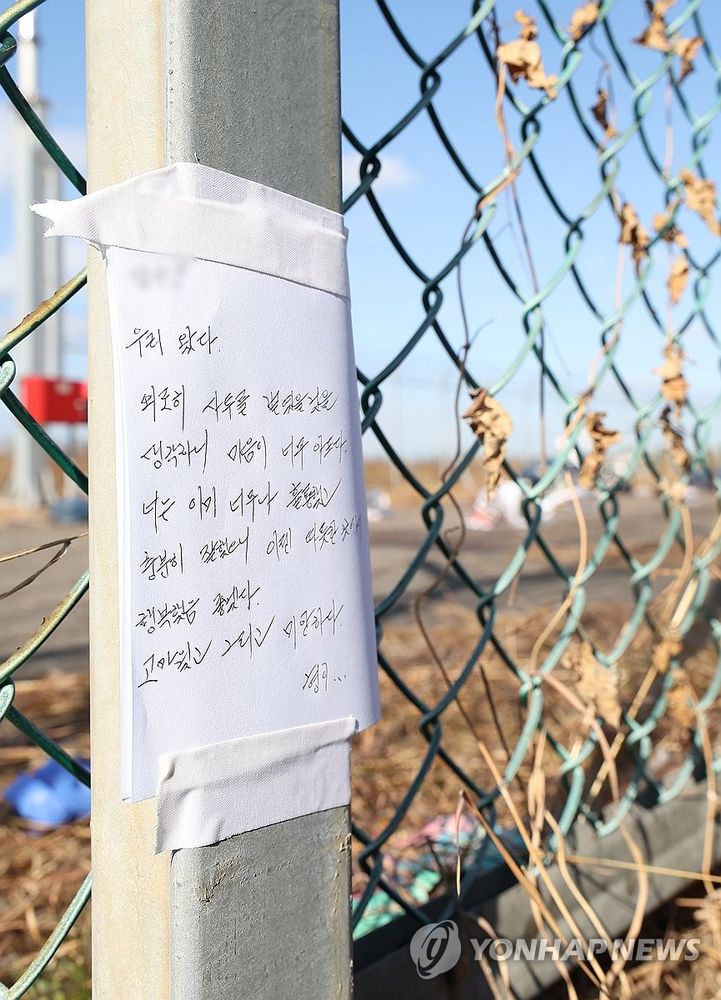 우리 왔다.
외로히 사투를 벌였을것을
생각하니 마음이 너무 아프다.
너는 이미 너무나 훌륭했고
충분히 잘했으니 이젠 따뜻한 곳에서
행복했음 좋겠다.
고마웠고 그리고 미안하다.
형이...
YONHAPNEWS